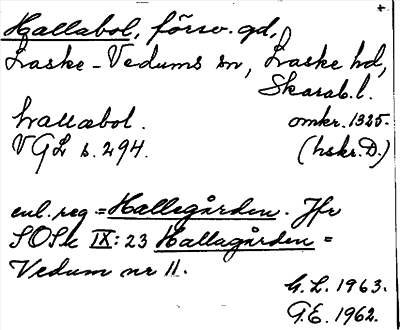 +.
Hallabol, försv. gd,
Laske-Vedums sn, Laske hd,
Skarab.l.
hallæbol. omkr. 1325.
VGL s. 294. (hskr. D.)
enl. reg = Hallegården. Jfr
SOSk IX: 23 Hallagården =
Vedum nr 11.
G.L. 1963.
G.E. 1962.